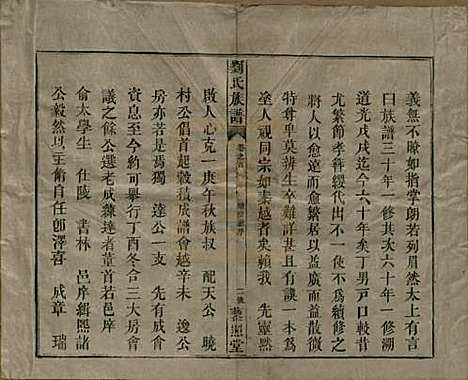 義無不賅如指掌朗若列眉然太上有言
曰族譜三十年一修其次六十年一修溯
道光戊戌迄今六十年矣丁男戸口較昔
尤繁節孝簪纓代出不一使不續修之
將人以愈遠而愈繁居以益廣而益散微
特尊卑莫辨生卒難詳甚且有誤一本為
塗人視同宗如秦越者矣賴我 先靈默
劉氏族譜
敘堂
啟人心克一庚午秋族叔 配天公 曉
村公倡首起穀積成譜會越辛未 逸公
房亦若蔦獨 達公一支 先行定議
資息至今約可舉行丁酉冬合三大房會
議之餘公選老成練達者董首若邑庠
俞太學生 仕陵 書林 邑庠緝熙諸
公毅然以主脩自任卽澤喜 成章 瑞